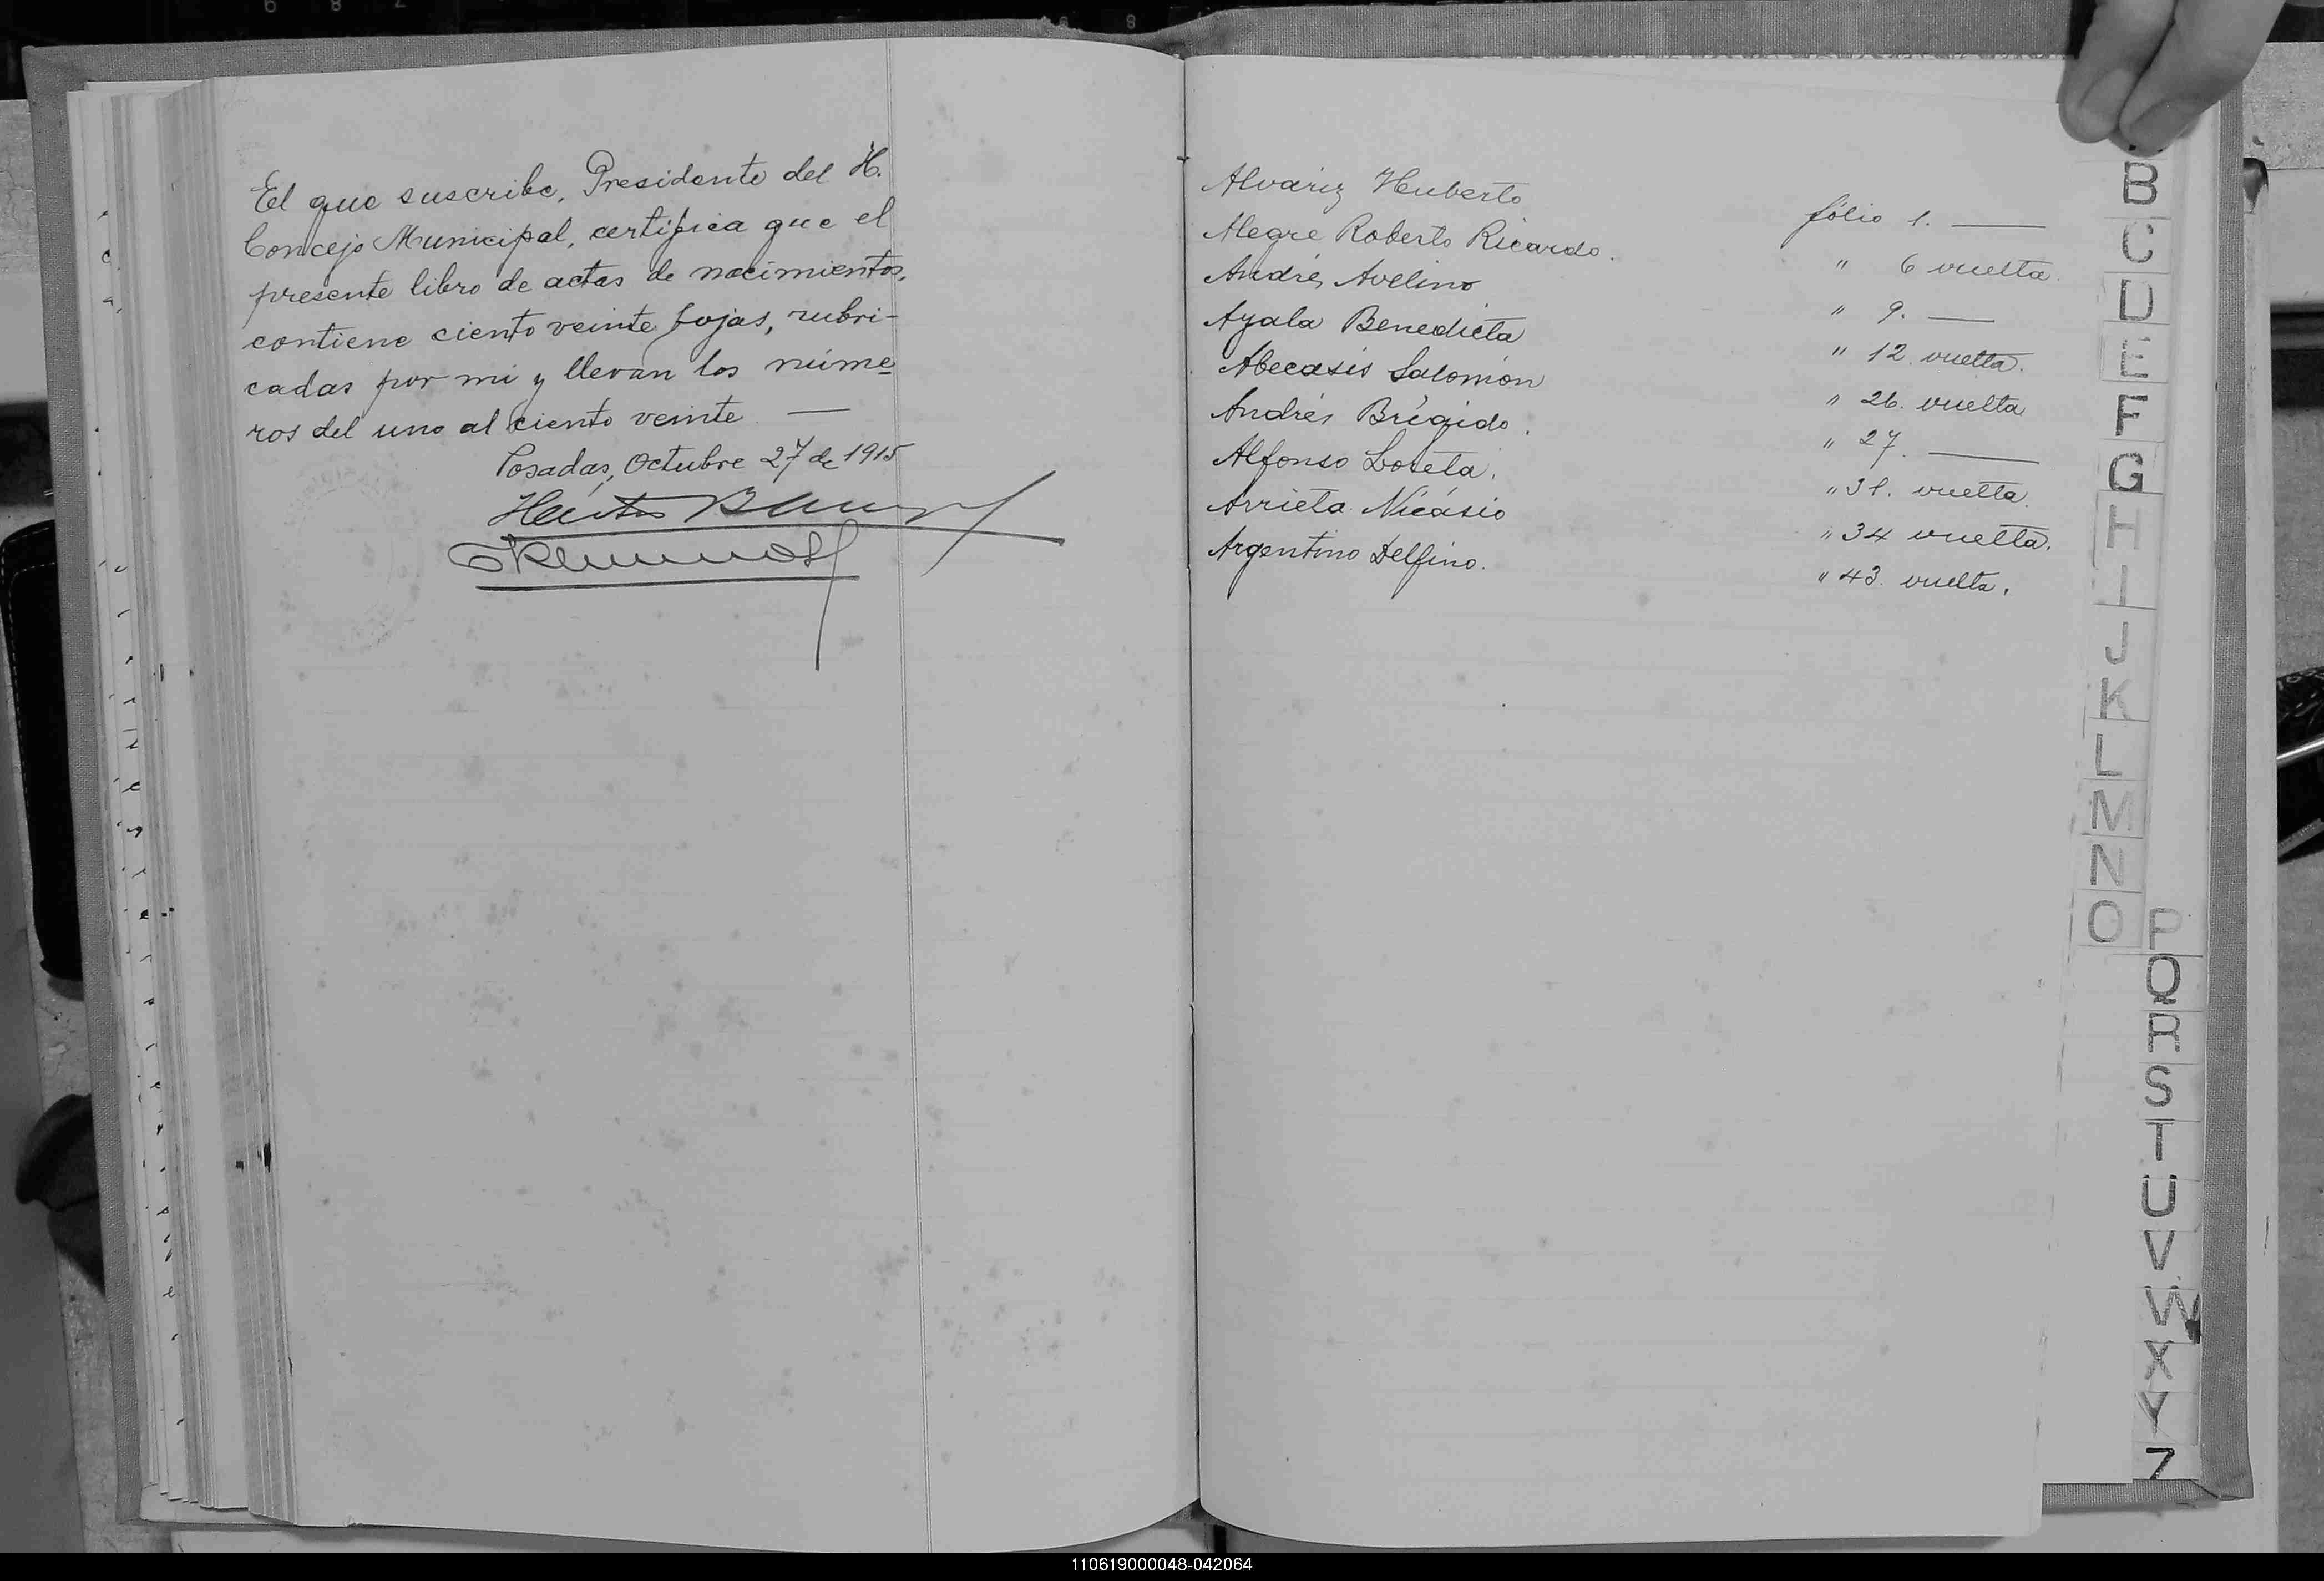 El que suscribe, Presidente del H.
Concejo Municipal, certifica que el
presente libro de actas de nacimientos,
contiene ciento veinte fojas, rubri-
cadas por mi y llevan los núme
ros del uno al ciento veinte. —
Posadas, Octubre 27 de 1915
Alvariz Huberto fólio 1. —
Alegre Roberto Ricardo. " 6 vuelta.
Andrés Avelino " 9. —
Ayala Benedicta " 12 vuelta.
Abecasis Salomón " 26. vuelta
Andrés Brígido. " 27. —
Alfonso Loreta. " 31. vuelta.
Arrieta Nicásio " 34 vuelta.
Argentino Delfino. " 43. vuelta.
B
C
D
E
F
G
H
I
J
K
L
M
N
O
P
Q
R
S
T
U
V
W
X
Y
Z
110619000048-042064